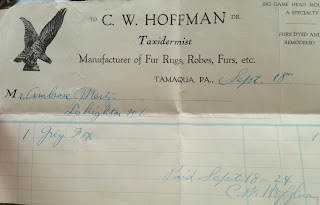 BIG GAME HEAD MOU
A SPECIALTY
TO C. W. HOFFMAN DR.
Taxidermist
FURS DYED AND
REMODELED
Manufacturer of Fur Rugs, Robes, Furs, etc.
TAMAQUA, PA., Sept. 18
Mr. Ambrose
Lehighton
1 Grey Fox
Paid Sept. 18-24
C. W. Hoffman